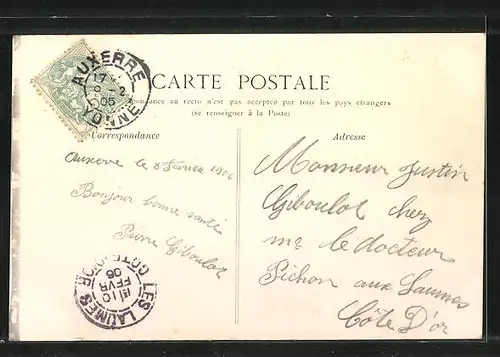 AUXERRE
17
8 - 2
05
YONNE
CARTE POSTALE
La Correspondance au recto n'est pas acceptée par tous les pays étrangers
(se renseigner à la Poste)
Correspondance
Adresse
Auxerre le 8 Fevrier 1906
Bonjour bonne santé
Pierre Giboulot
Monsieur Justin
Giboulot chez
me le docteur
Pichon aux Laumes
Côte D'or
LES LAUMES
10
FEVR
06
COTE-D'OR